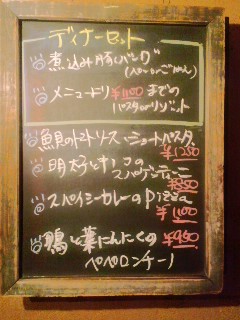 ディナーセット
煮込み豚バーグ
メニューより ¥1100 までの
パスタorリゾット
魚貝のトマトソース ショートパスタ
¥1250
明太子ときのこの
スパゲティーニ
¥850
スパイシーカレーのpizza
¥1100
鴨と葉にんにくの ¥950
ペペロンチーノ